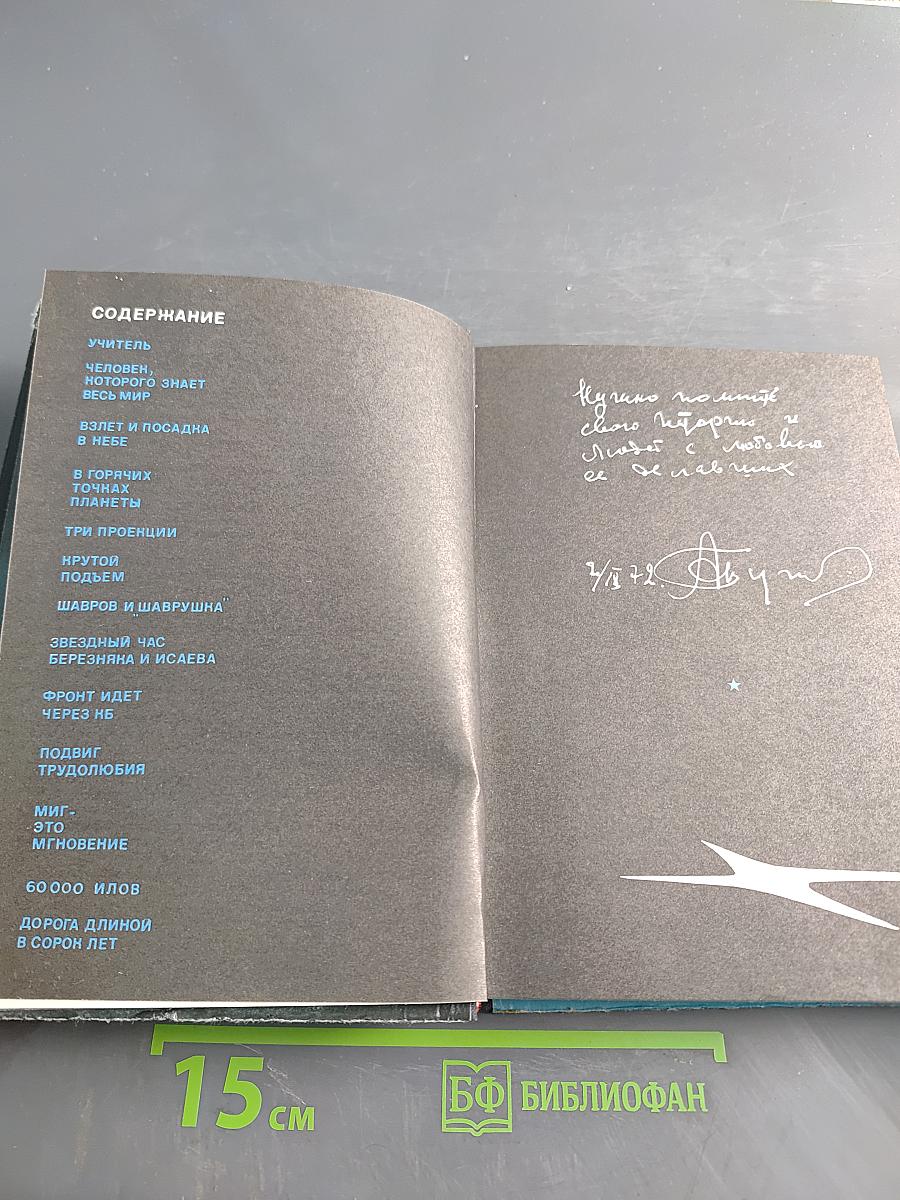 СОДЕРЖАНИЕ
УЧИТЕЛЬ
ЧЕЛОВЕК,
КОТОРОГО ЗНАЕТ
ВЕСЬ МИР
ВЗЛЕТ И ПОСАДКА
В НЕБЕ
В ГОРЯЧИХ
ТОЧКАХ
ПЛАНЕТЫ
ТРИ ПРОЕКЦИИ
КРУТОЙ
ПОДЪЕМ
ШАВРОВ И „ШАВРУШКА"
ЗВЕЗДНЫЙ ЧАС
БЕРЕЗНЯКА И ИСАЕВА
ФРОНТ ИДЕТ
ЧЕРЕЗ КБ
ПОДВИГ
ТРУДОЛЮБИЯ
МИГ-
ЭТО
МГНОВЕНИЕ
60 000 ИЛОВ
ДОРОГА ДЛИНОЙ
В СОРОК ЛЕТ
Нужно помнить
свою историю и
людей с любовью
ее делавших
2/IX 72.
15 см
БФ БИБЛИОФАН